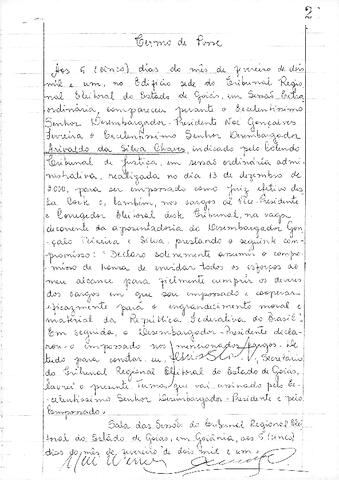 2
Termo de Posse
Aos 5 (cinco) dias do mês de fevereiro de dois
mil e um, no Edifício sede do Tribunal Regional
Eleitoral do Estado de Goiás, em Sessão Extra
ordinária, compareceu perante o Excelentíssimo
Senhor Desembargador-Presidente Noé Gonçalves
Ferreira o Excelentíssimo Senhor Desembargador
Arivaldo da Silva Chaves, indicado pelo Colendo
Tribunal de Justiça, em sessão ordinária admi-
nistrativa, realizada no dia 13 de dezembro de
2.000, para ser empossado como juiz efetivo des
ta Corte e, também, nos cargos de Vice-Presidente
e Corregedor Eleitoral deste Tribunal, na vaga
decorrente da aposentadoria do Desembargador Gon
çalo Teixeira e Silva, prestando o seguinte com-
promisso: "Declaro solenemente assumir o compro
misso de honra de envidar todos os esforços ao
meu alcance para fielmente cumprir os deveres
dos cargos em que sou empossado e cooperar
eficazmente para o engrandecimento moral e
material da República Federativa do Brasil".
Em seguida, o Desembargador-Presidente decla-
rou o empossado nos mencionados cargos. De
tudo para constar, eu, Secretário
do Tribunal Regional Eleitoral do Estado de Goiás,
lavrei o presente Termo que vai assinado pelo Ex-
celentíssimo Senhor Desembargador-Presidente e pelo
Empossado.
Sala das Sessões do Tribunal Regional Elei
toral do Estado de Goiás, em Goiânia, aos 5 (cinco)
dias do mês de fevereiro de dois mil e um.